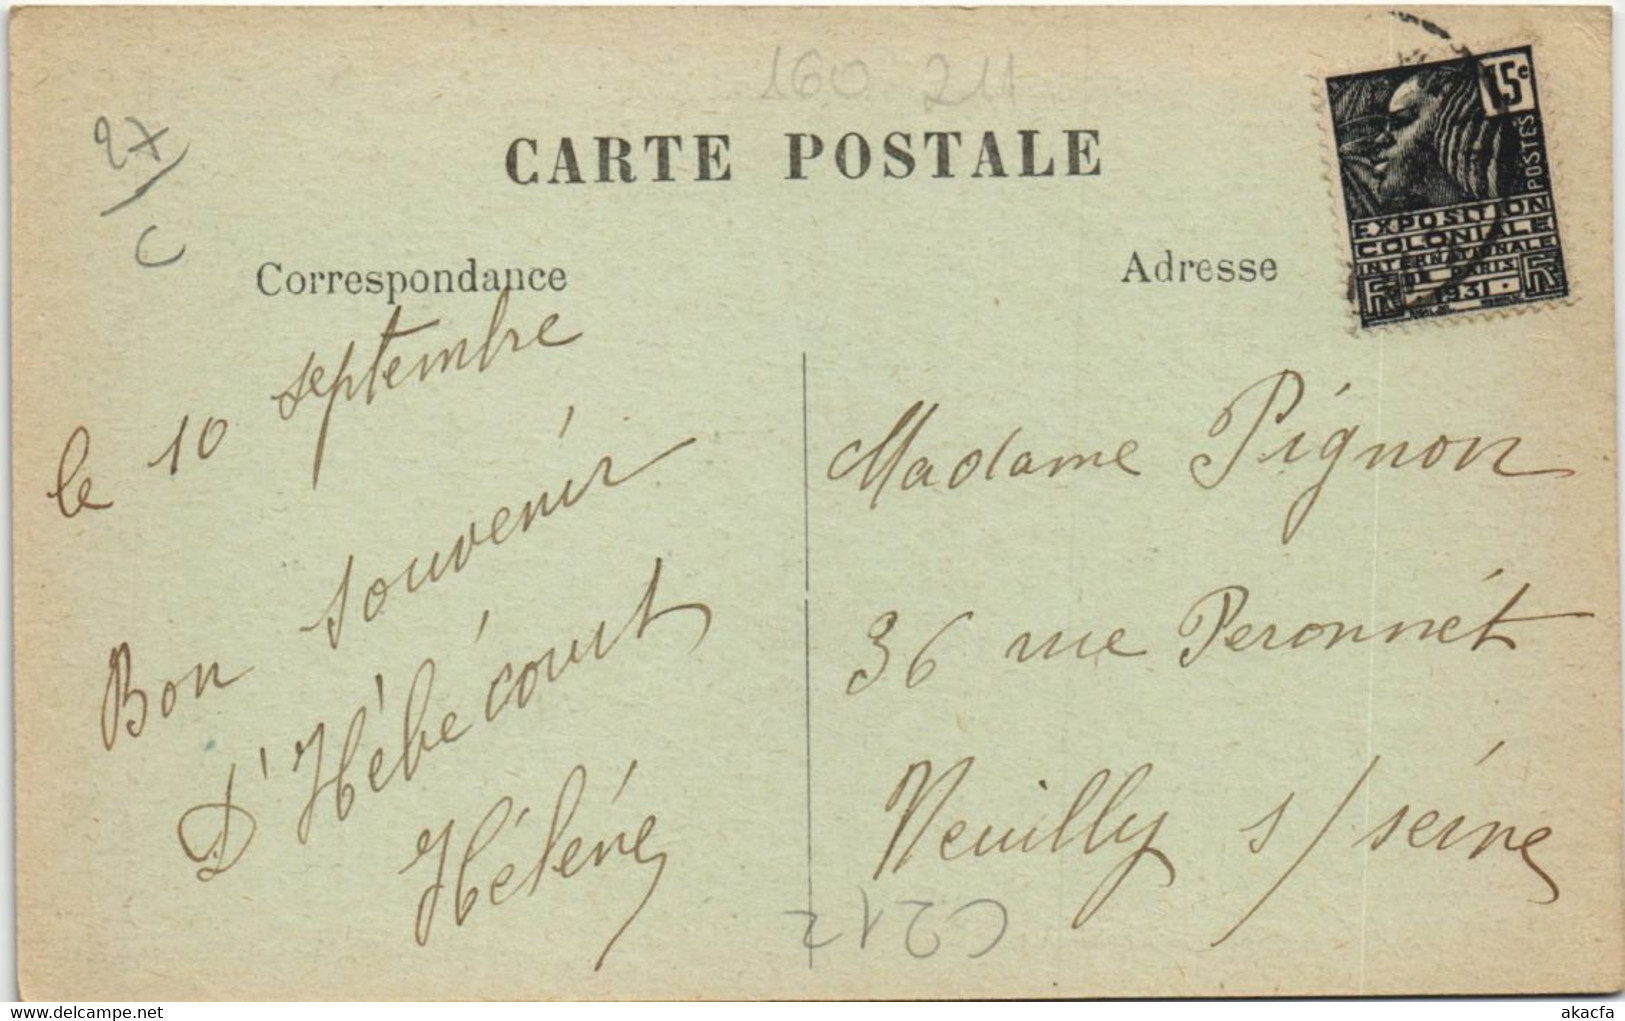 160 211
27
C
CARTE POSTALE
Correspondance
Adresse
15c
POSTES
EXPOSITION
COLONIALE
INTERNATIONALE
DE PARIS
RF 1931 RF
le 10 septembre
Bon souvenir
D'Hébécourt
Hélène
Madame Pignon
36 rue Peronnet
Neuilly s/seine
C212
www.delcampe.net
akacfa